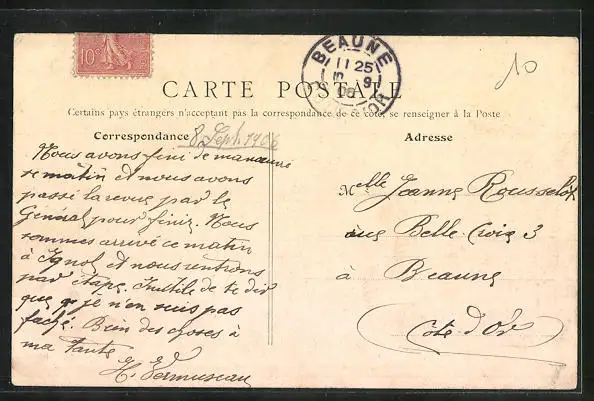 10c
BEAUNE
11 25
9
06
CÔTE-D'OR
10
CARTE POSTALE
Certains pays étrangers n'acceptant pas la correspondance de ce côté, se renseigner à la Poste
Correspondance
8 Sept. 1906
Adresse
Nous avons fini de manœuvre
ce matin et nous avons
passé la revue par le
General pour finir. Nous
sommes arrivé ce matin
à Ignol et nous rentrons
par étape. Inutile de te dir
que je n'en suis pas
faché. Bien des choses à
ma tante
Melle Jeanne Rousselot
rue Belle-Croix 3
à Beaune
Côte-d'Or